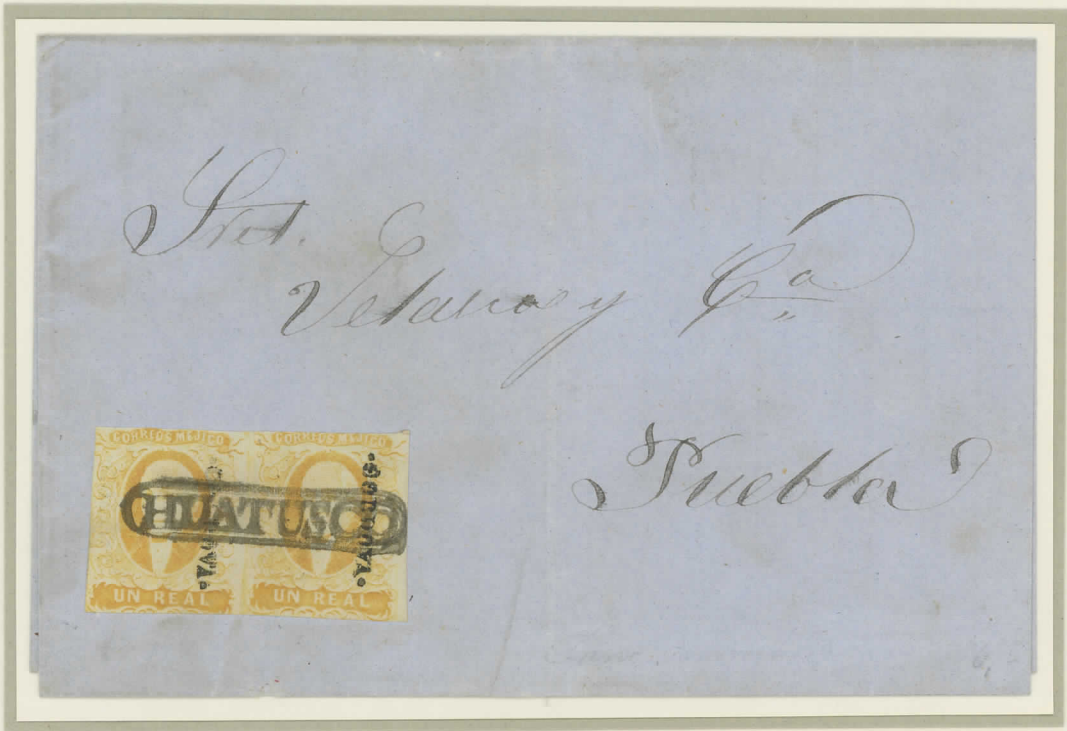 Sres.
Velasco y Ca
Puebla
CORREOS MEJICO CORREOS MEJICO
HUATUSCO
UN REAL UN REAL